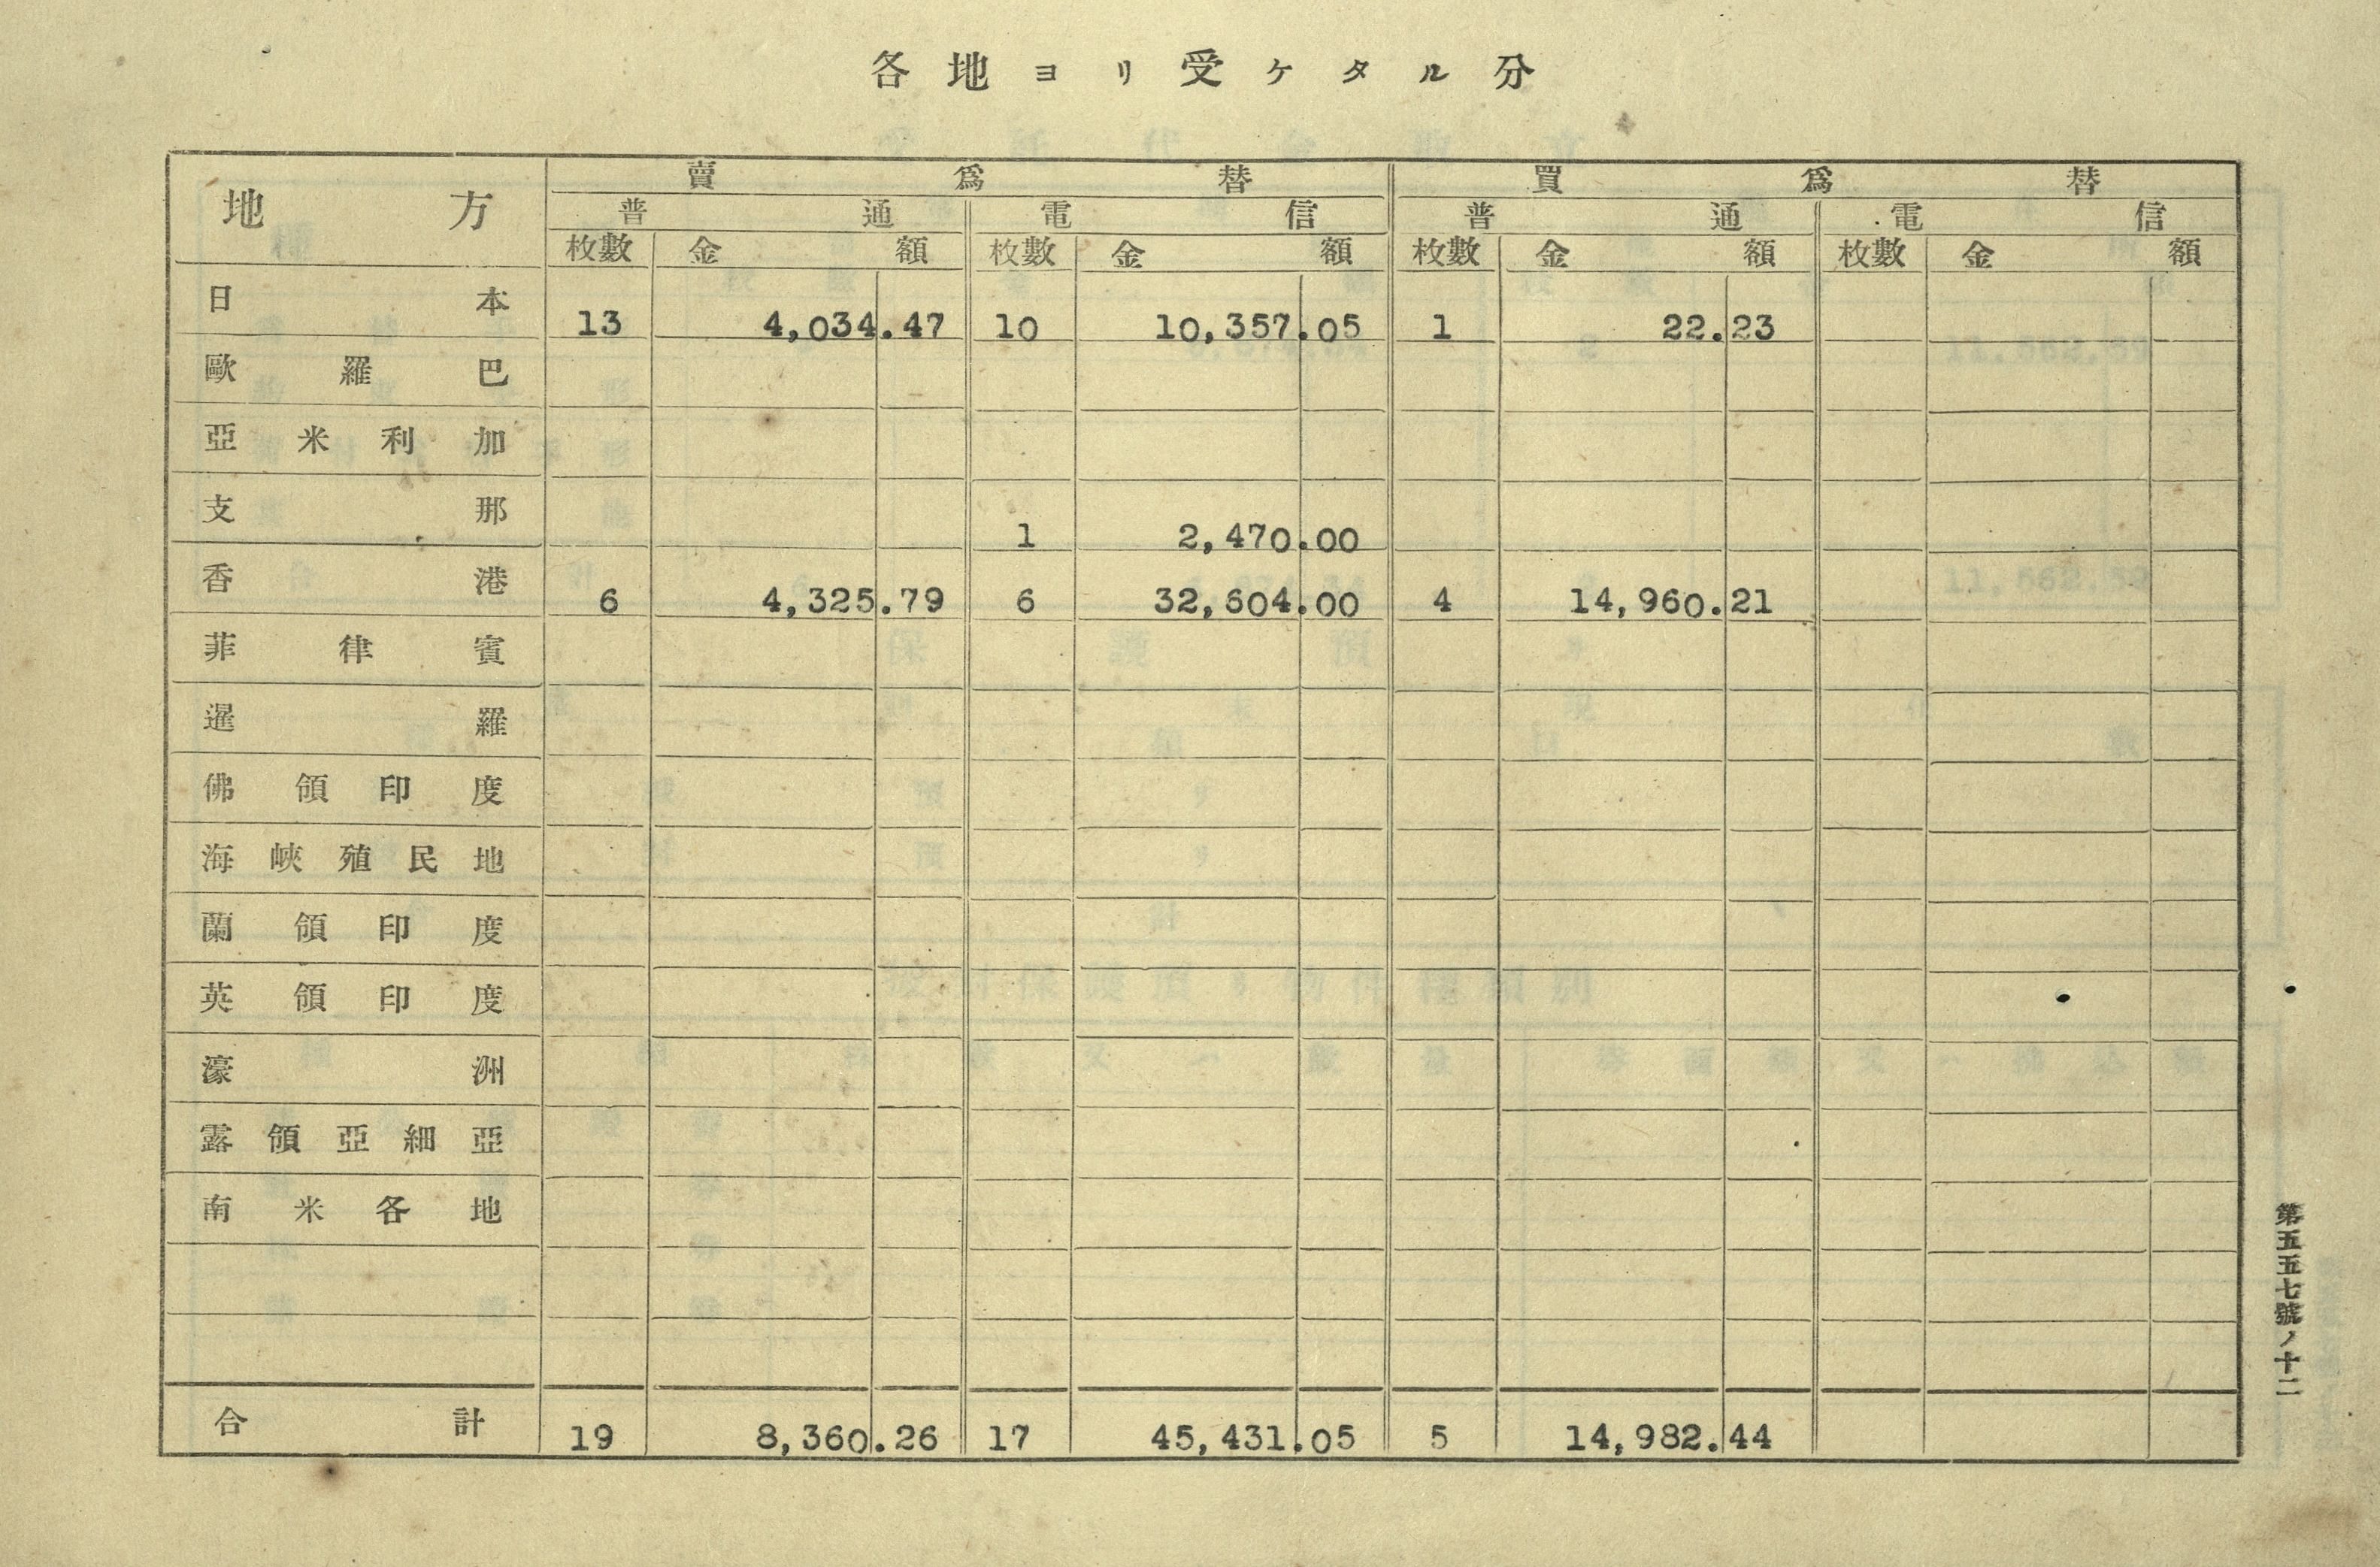 各地ヨリ受ケタル分
地方 賣爲替 買爲替
普通 電信 普通 電信
枚數 金額 枚數 金額 枚數 金額 枚數 金額
日本 13 4,034.47 10 10,357.05 1 22.23
歐羅巴
亞米利加
支那 1 2,470.00
香港 6 4,325.79 6 32,604.00 4 14,960.21
菲律賓
暹羅
佛領印度
海峽殖民地
蘭領印度
英領印度
濠洲
露領亞細亞
南米各地
合計 19 8,360.26 17 45,431.05 5 14,982.44
第五五七號ノ十二